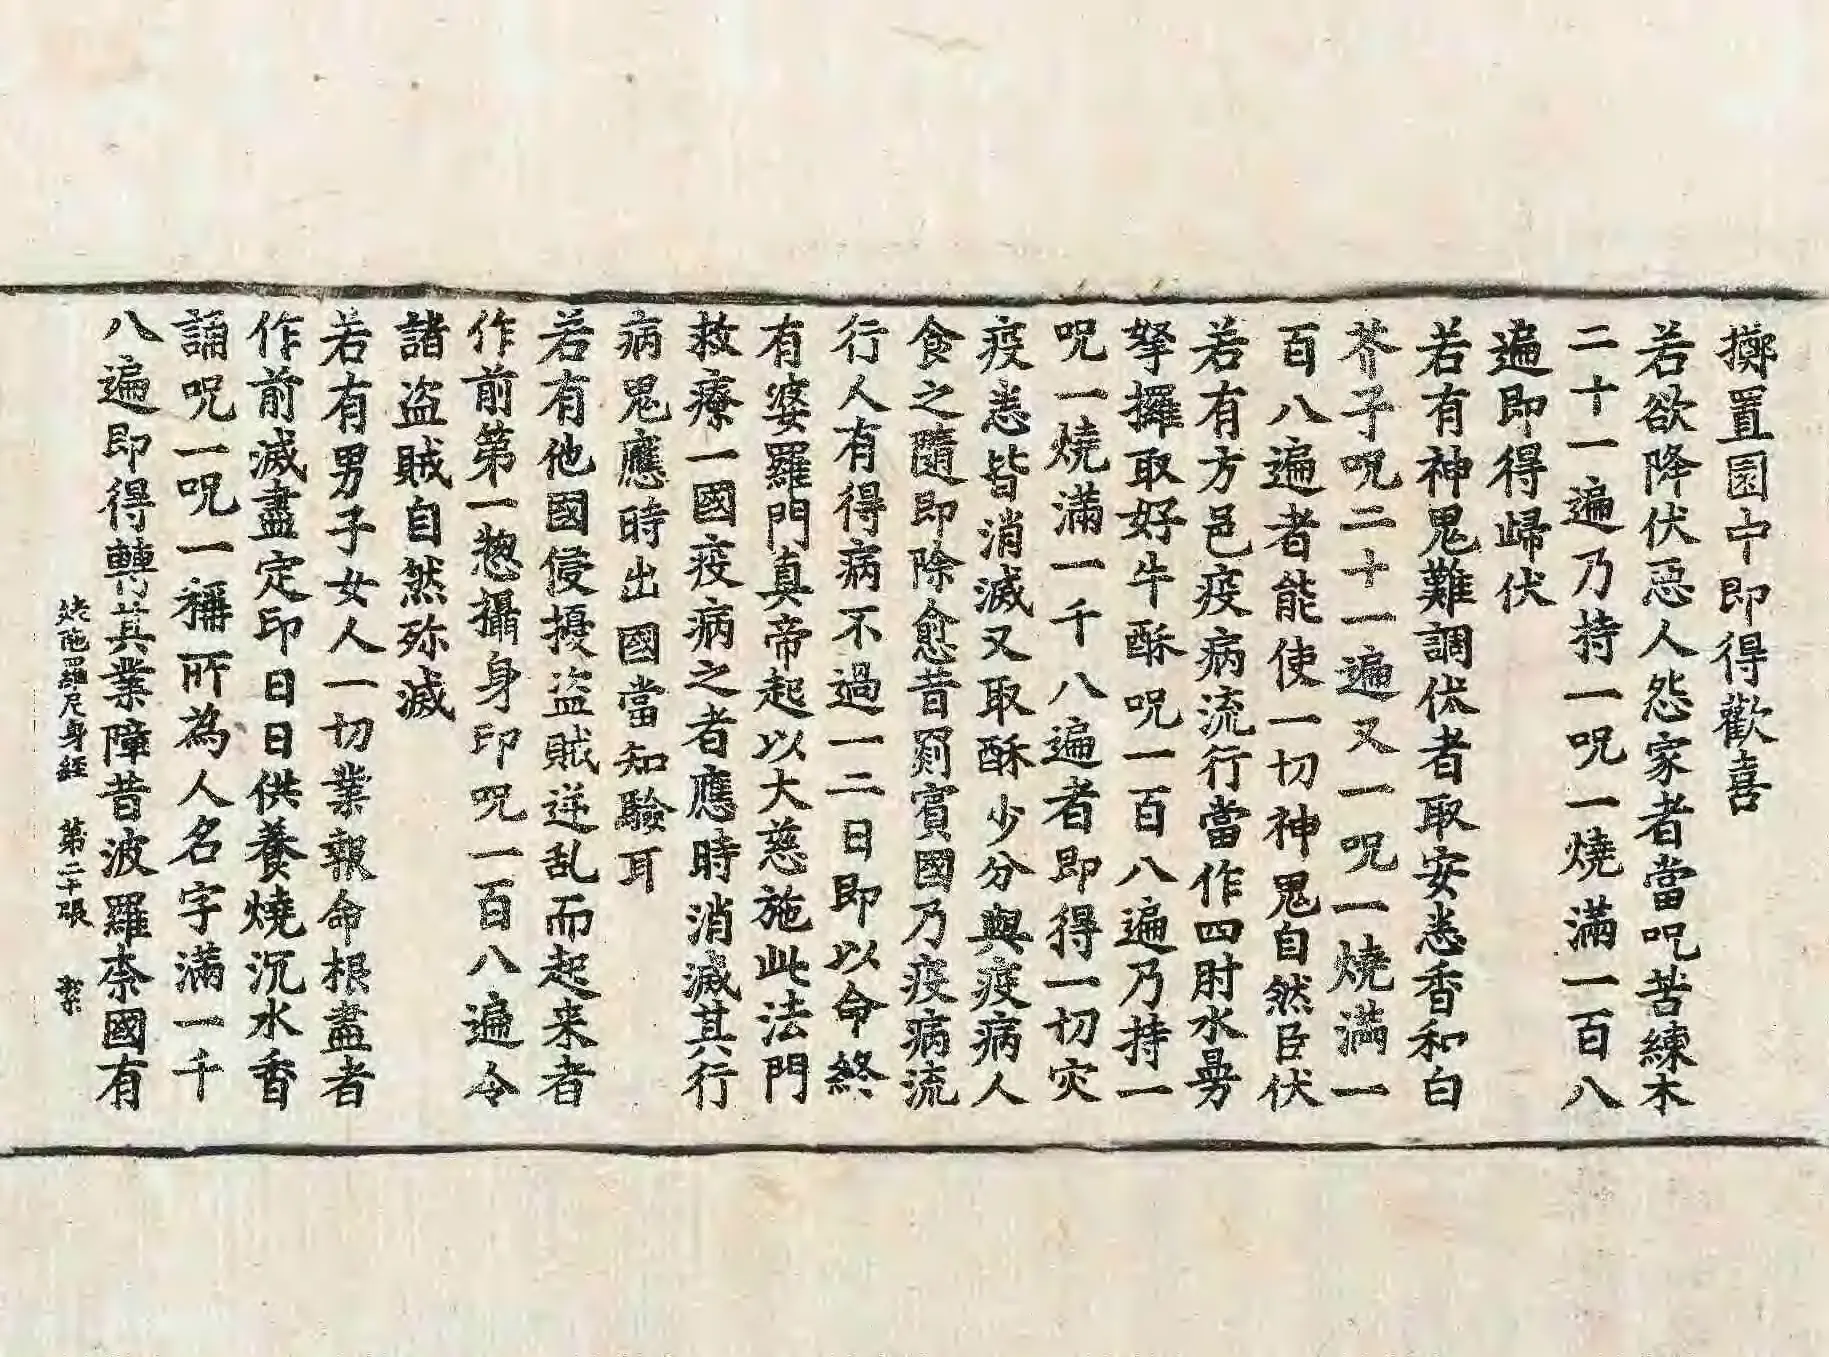 擲置園中即得歡喜
若欲降伏惡人怨家者當呪苦練木
二十一遍乃持一呪一燒滿一百八
遍即得歸伏
若有神鬼難調伏者取安悉香和白
芥子呪二十一遍又一呪一燒滿一
百八遍者能使一切神鬼自然臣伏
若有方邑疫病流行當作四肘水曼
拏攞取好牛酥呪一百八遍乃持一
呪一燒滿一千八遍者即得一切灾
疫悉皆消滅又取酥少分與疫病人
食之隨即除愈昔罽賓國乃疫病流
行人有得病不過一二日即以命終
有婆羅門真帝起以大慈施此法門
救療一國疫病之者應時消滅其行
病鬼應時出國當知驗耳
若有他國侵擾盜賊逆乱而起来者
作前第一惣攝身印呪一百八遍令
諸盜賊自然弥滅
若有男子女人一切業報命根盡者
作前滅盡定印日日供養燒沉水香
誦呪一呪一稱所為人名字滿一千
八遍即得轉其業障昔波羅柰國有
陁羅尼身經 第二十張